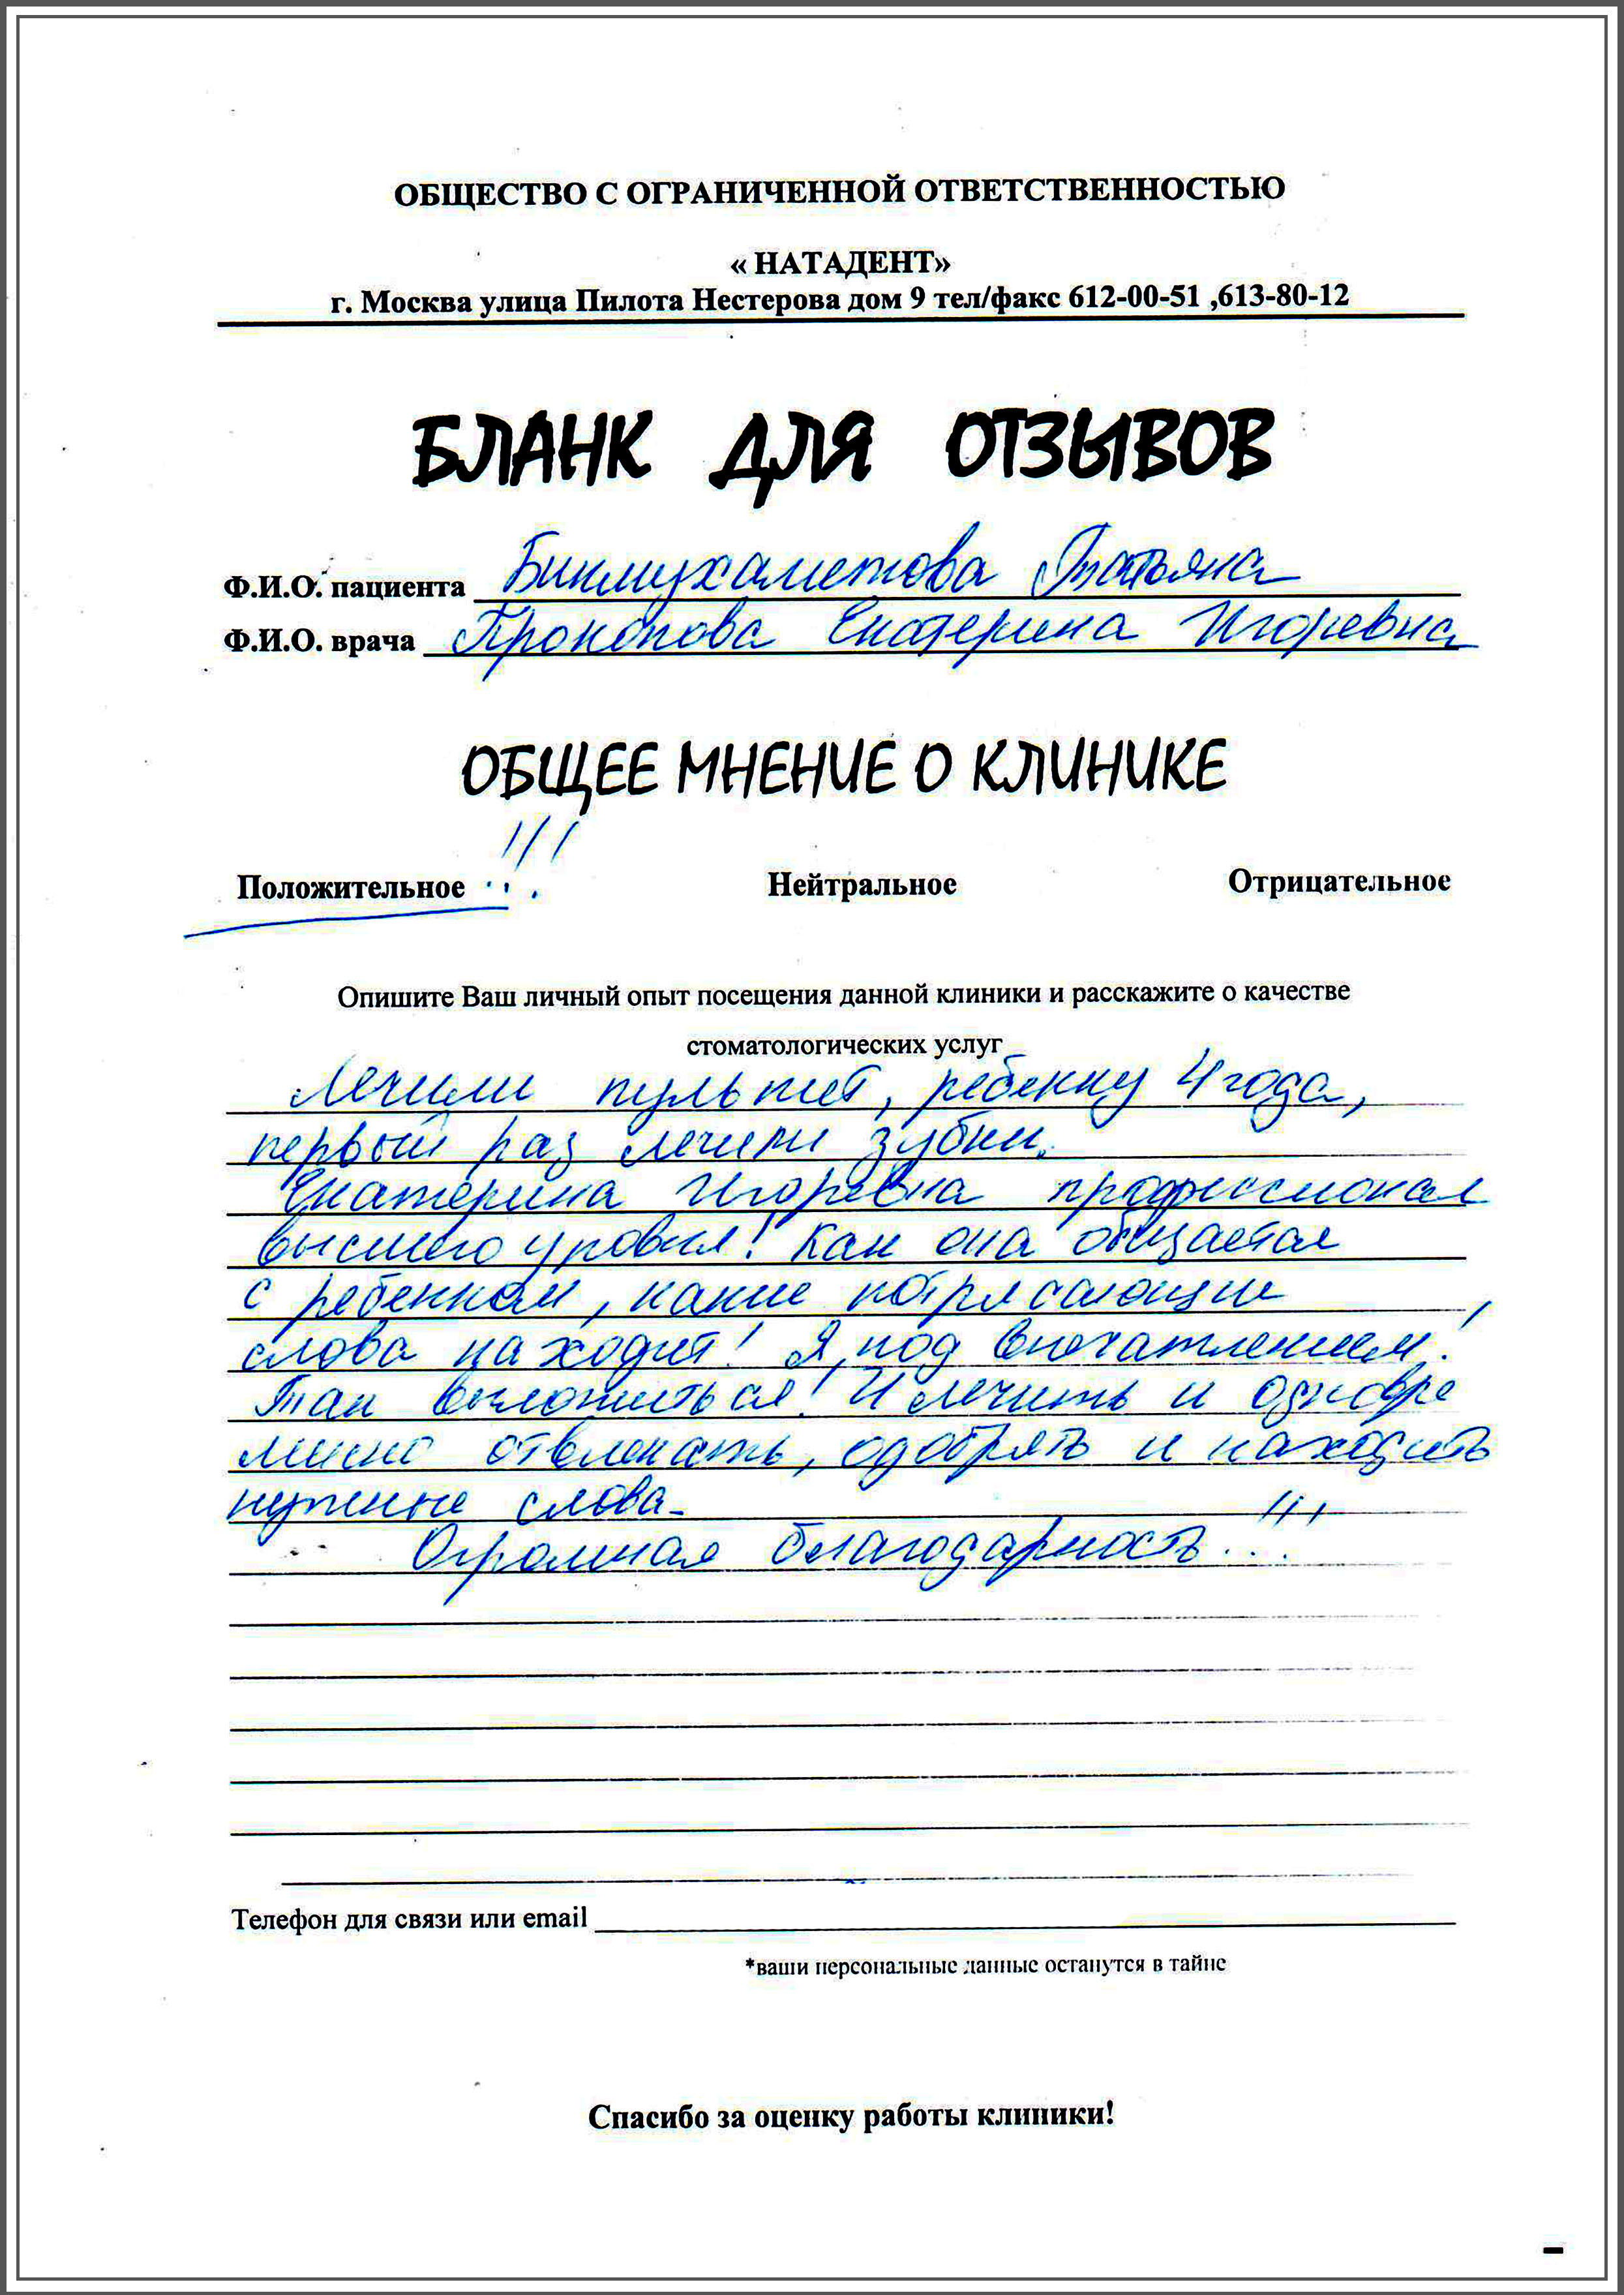 ОБЩЕСТВО С ОГРАНИЧЕННОЙ ОТВЕТСТВЕННОСТЬЮ
« НАТАДЕНТ»
г. Москва улица Пилота Нестерова дом 9 тел/факс 612-00-51 ,613-80-12
БЛАНК ДЛЯ ОТЗЫВОВ
Ф.И.О. пациента Бикмухаметова Татьяна
Ф.И.О. врача Прокопова Екатерина Игоревна
ОБЩЕЕ МНЕНИЕ О КЛИНИКЕ
Положительное !!! Нейтральное Отрицательное
Опишите Ваш личный опыт посещения данной клиники и расскажите о качестве
стоматологических услуг
Лечили пульпит, ребенку 4 года,
первый раз лечили зубки.
Екатерина Игоревна профессионал
высшего уровня! Как она общается
с ребенком, какие потрясающие
слова находит! Я под впечатлением!
Так выложиться! И лечить и одновре
менно отвлекать, одобрять и находить
нужные слова.
Огромная благодарность!!!
Телефон для связи или email
*ваши персональные данные останутся в тайне
Спасибо за оценку работы клиники!